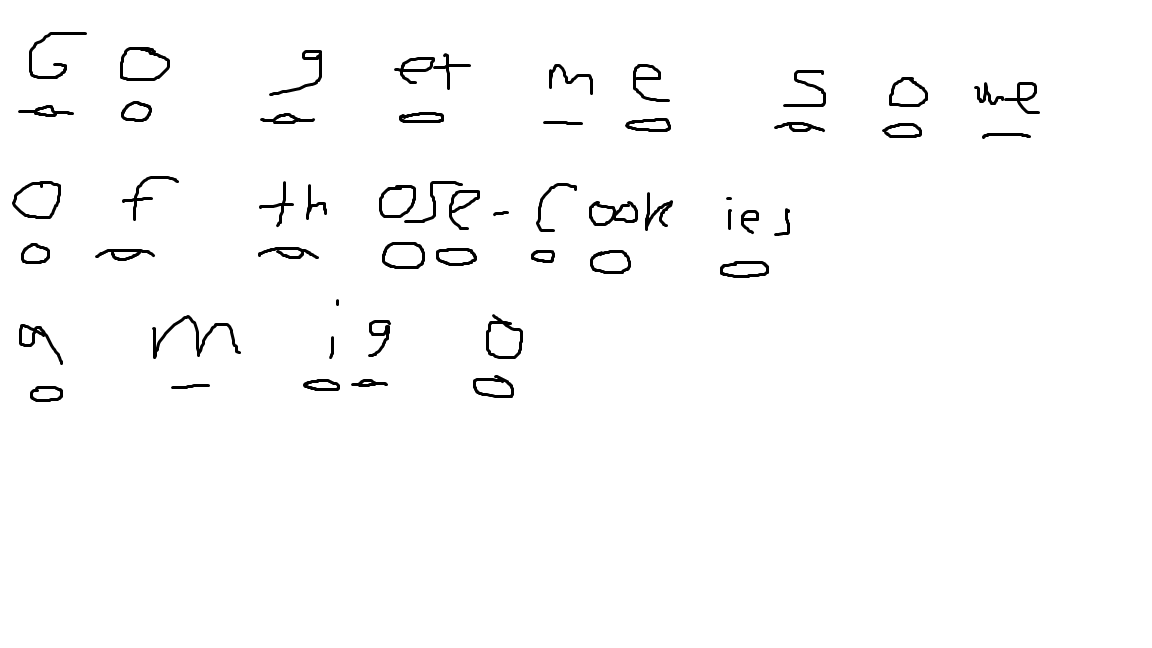 GO get me some
of those-Cookies
amigo